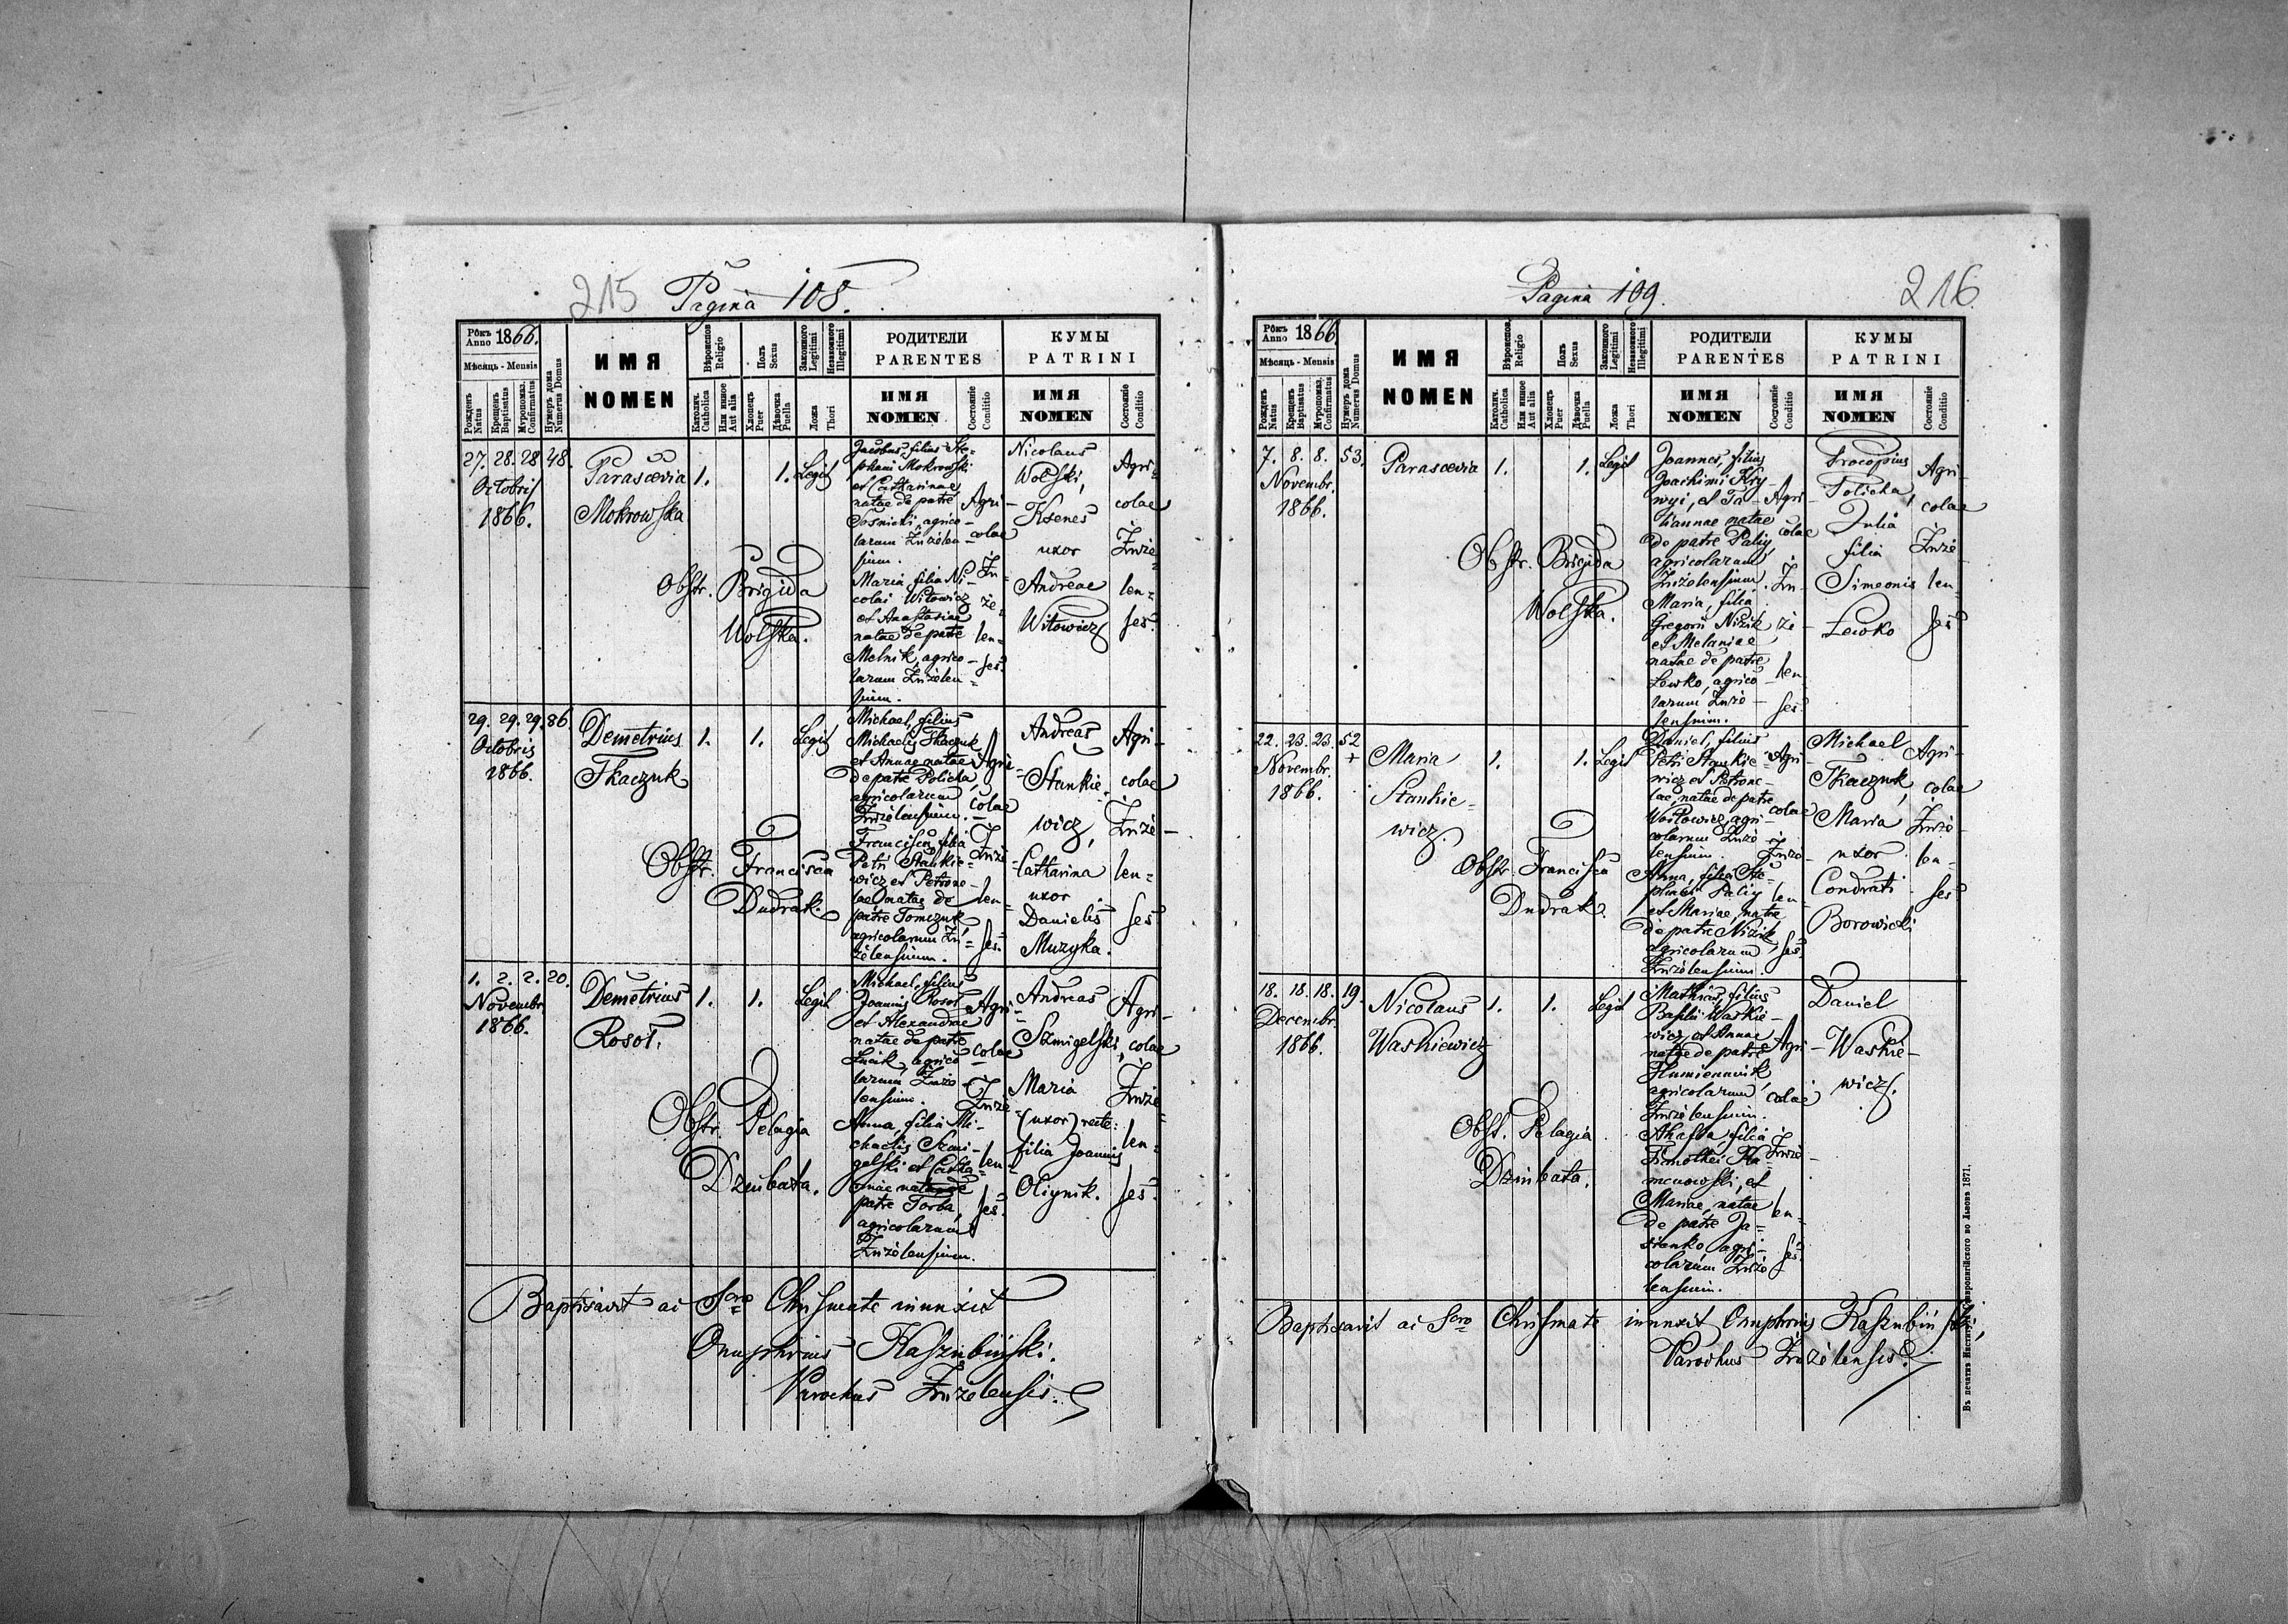 215 Pagina 108.
Рôкъ Anno 1866.
Мѣсяць - Mensis
Рожденъ Natus
Крещенъ Baptisatus
Мѵропомаз. Confirmatus
Нумеръ дома Numerus Domus
ИМЯ
NOMEN
Вѣроисповѣ Religio
Католич. Catholica
Или иное Aut alia
Полъ Sexus
Хлопецъ Puer
Дѣвочка Puella
Законного Legitimi
Незаконного Illegitimi
Ложа Thori
РОДИТЕЛИ
PARENTES
ИМЯ
NOMEN
Состояніе Conditio
КУМЫ
PATRINI
ИМЯ
NOMEN
Состояніе Conditio
27. 28. 28. 48.
Octobris
1866.
Parascevia
Mokrowska
1. 1. Legit
Obstr. Brigida
Wolska.
Jacobus, filius Ste-
phani Mokrowski
et Catharinae
natae de patre
Sosnicki, agrico-
larum Zużelen-
sium.
Maria filia Ni-
colai Witowicz
et Anastasiae
natae de patre
Melnik, agrico-
larum Zużelen-
sium.
Agri-
colae
Zu-
że-
len-
ses.
Nicolaus
Wolski,
Ksenes
uxor
Andreae
Witowicz
Agri-
colae
Zuże-
len-
ses.
29. 29. 29. 86.
Octobris
1866.
Demetrius
Tkaczuk
1. 1. Legit
Obstr. Francisca
Dudrak.
Michael, filius
Michaelis Tkaczuk
et Annae natae
de patre Policha,
agricolarum
Zużelensium.
Francisca, filia
Petri Stankie-
wicz et Petrone-
lae natae de
patre Tomczuk
agricolarum Zu-
żelensium.
Agri-
colae
Zuże-
len-
ses.
Andreas
Stankie-
wicz,
Catharina
uxor
Danielis
Muzyka.
Agri-
colae
Zuże-
len-
ses
1. 2. 2. 20.
Novembr.
1866.
Demetrius
Rosoł.
1. 1. Legit
Obstr. Pelagia
Dziubata.
Michael, filius
Joannis Rosoł
et Alexandrae
natae de patre
Łucik, agrico-
larum Zuże-
lensium.
Anna, filia Mi-
chaelis Szmi-
gelski et Catha-
rinae natae de
patre Torba,
agricolarum
Zużelensium.
Agri-
colae
Zuże-
len-
ses.
Andreas
Szmigelski,
Maria
(uxor) recte:
filia Joannis
Oliynik.
Agri-
colae
Zuże-
len-
ses.
Baptisavit ac Scro Chrismate inunxit
Onuphrius Kaszubiński.
Parochus Zużelensis.
Pagina 109. 216
Рôкъ Anno 1866.
Мѣсяць - Mensis
Рожденъ Natus
Крещенъ Baptisatus
Мѵропомаз. Confirmatus
Нумеръ дома Numerus Domus
ИМЯ
NOMEN
Вѣроисповѣ Religio
Католич. Catholica
Или иное Aut alia
Полъ Sexus
Хлопецъ Puer
Дѣвочка Puella
Законного Legitimi
Незаконного Illegitimi
Ложа Thori
РОДИТЕЛИ
PARENTES
ИМЯ
NOMEN
Состояніе Conditio
КУМЫ
PATRINI
ИМЯ
NOMEN
Состояніе Conditio
7. 8. 8. 53.
Novembr.
1866.
Parascevia
1. 1. Legit
Obstr. Brigida
Wolska.
Joannes, filius
Joachimi Kry-
wyi, et Ta-
tiannae natae
de patre Paliy,
agricolarum
Zużelensium.
Maria, filia
Gregorii Nizik
et Melaniae
natae de patre
Lewko, agrico-
larum Zuże-
lensium.
Agri-
colae
Zu-
że-
len-
ses
Procopius
Policha,
Julia
filia
Simeonis
Lewko
Agri-
colae
Zuże-
len-
ses
22. 23. 23. 52
Novembr. +
1866.
Maria
Stankie-
wicz.
1. 1. Legit
Obstr. Francisca
Dudrak.
Daniel, filius
Petri Stankie-
wicz et Petrone-
lae, natae de patre
agri-
colarum Zuże-
lensium.
Anna, filia Ste-
phani Paliy
et Mariae, natae
de patre Nizik,
agricolarum
Zużelensium.
Agri-
colae
Zuże-
len-
ses.
Michael
Tkaczuk,
Maria
uxor
Condrati
Borowicki
Agri-
colae
Zuże-
len-
ses
18. 18. 18. 19.
Decembr.
1866.
Nicolaus
Waskiewicz
1. 1. Legit
Obst. Pelagia
Dziubata.
Mathias, filius
Basilii Waskie-
wicz, et Annae
natae de patre
agricolarum
Zużelensium.
Ahafia, filia
Timothei Ka-
menowski, et
Mariae, natae
de patre Ja-
sienko agri-
colarum Zuże-
lensium.
Agri-
colae
Zuże-
len-
ses
Daniel
Waskie-
wicz.
Baptisavit ac Scro Chrismate inunxit Onuphrius Kaszubiński,
Parochus Zużelensis.
Въ печатни Института Ставропигійского во Львовѣ 1871.